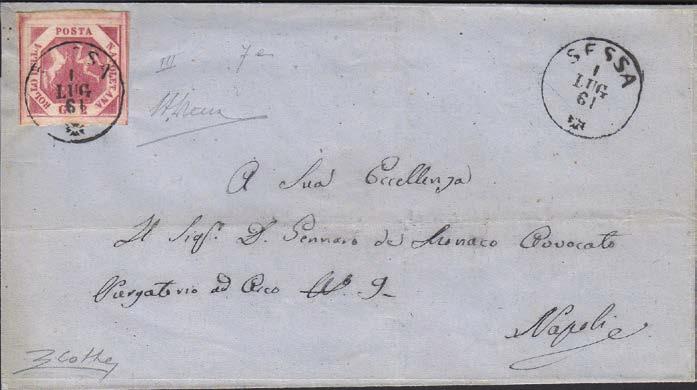 POSTA
NAPOLETANA
BOLLO DELLA
G. 2
1
LUG
61
SESSA
1
LUG
61
III 7e
A Sua Eccellenza
Il Sigr. D. Gennaro de Monaco Avvocato
Purgatorio ad Arco N° 9
Napoli